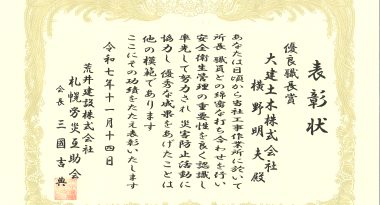 表彰状
優良職長賞
大建土木株式会社
横野明夫殿
あなたは日頃から当社工事作業所に於いて
所長 職員との綿密な打ち合わせを行い
安全衛生管理の重要性を良く認識し
率先して努力され 災害防止活動に
協力し 優秀な成果をあげたことは
他の模範であります
ここにその功績をたたえ表彰いたします
令和七年十一月十四日
荒井建設株式会社
札幌労災互助会
会長 三國吉典